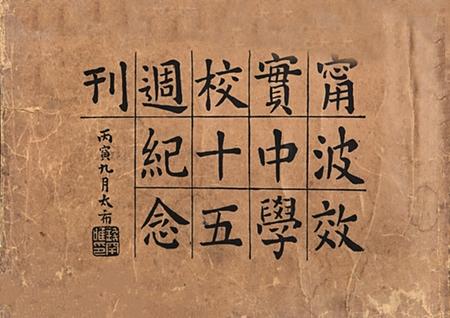 甯波效
實中學
校十五
週紀念
刊
丙寅九月太布